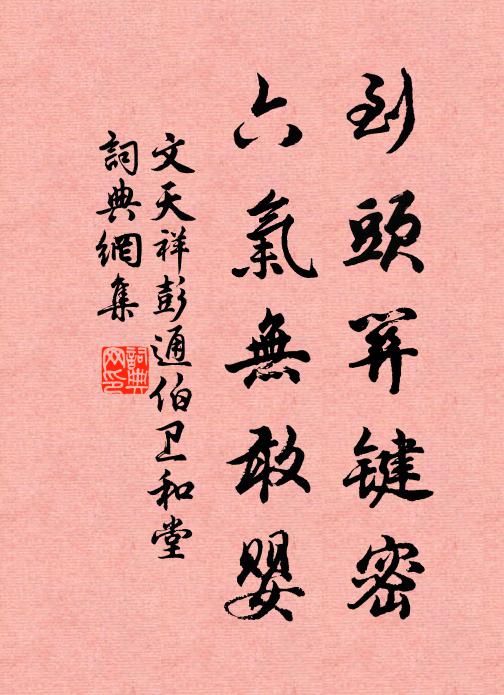 到頭關鍵密
六氣無敢嬰
文天祥彭通伯卫和堂
詞典網集
詞典
网印